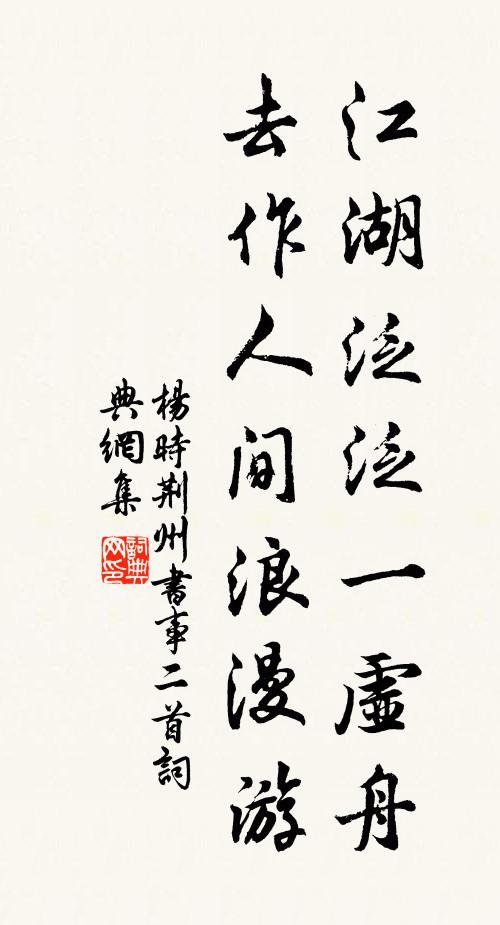 江湖泛泛一虛舟
去作人間浪漫游
楊時荆州書事二首詞
典網集
詞典网印